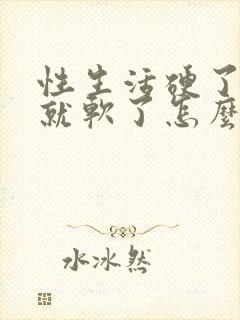 性生活硬了
就軟了怎麼
水冰然